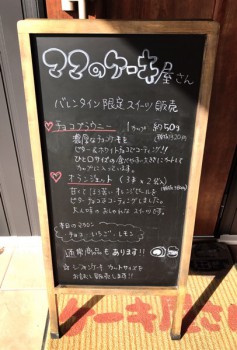 ママのケーキ屋さん
バレンタイン限定スイーツ販売
チョコブラウニー 1カップ 約50g
濃厚なチョコケーキを
ビター&ホワイトチョコでコーティング!!
ひと口サイズの食べやすい大きさにカットして
カップに入っています。
オランジェット (3本×2袋)
甘くてほろ苦いオレンジピールを
ビターチョコでコーティングしました。
大人味のおしゃれなスイーツです。
本日のマカロン
チョコ・いちご・レモン
通常商品もあります!!
☆シフォンケーキ カットサイズを
お試し販売します!!
ケーキ屋さん